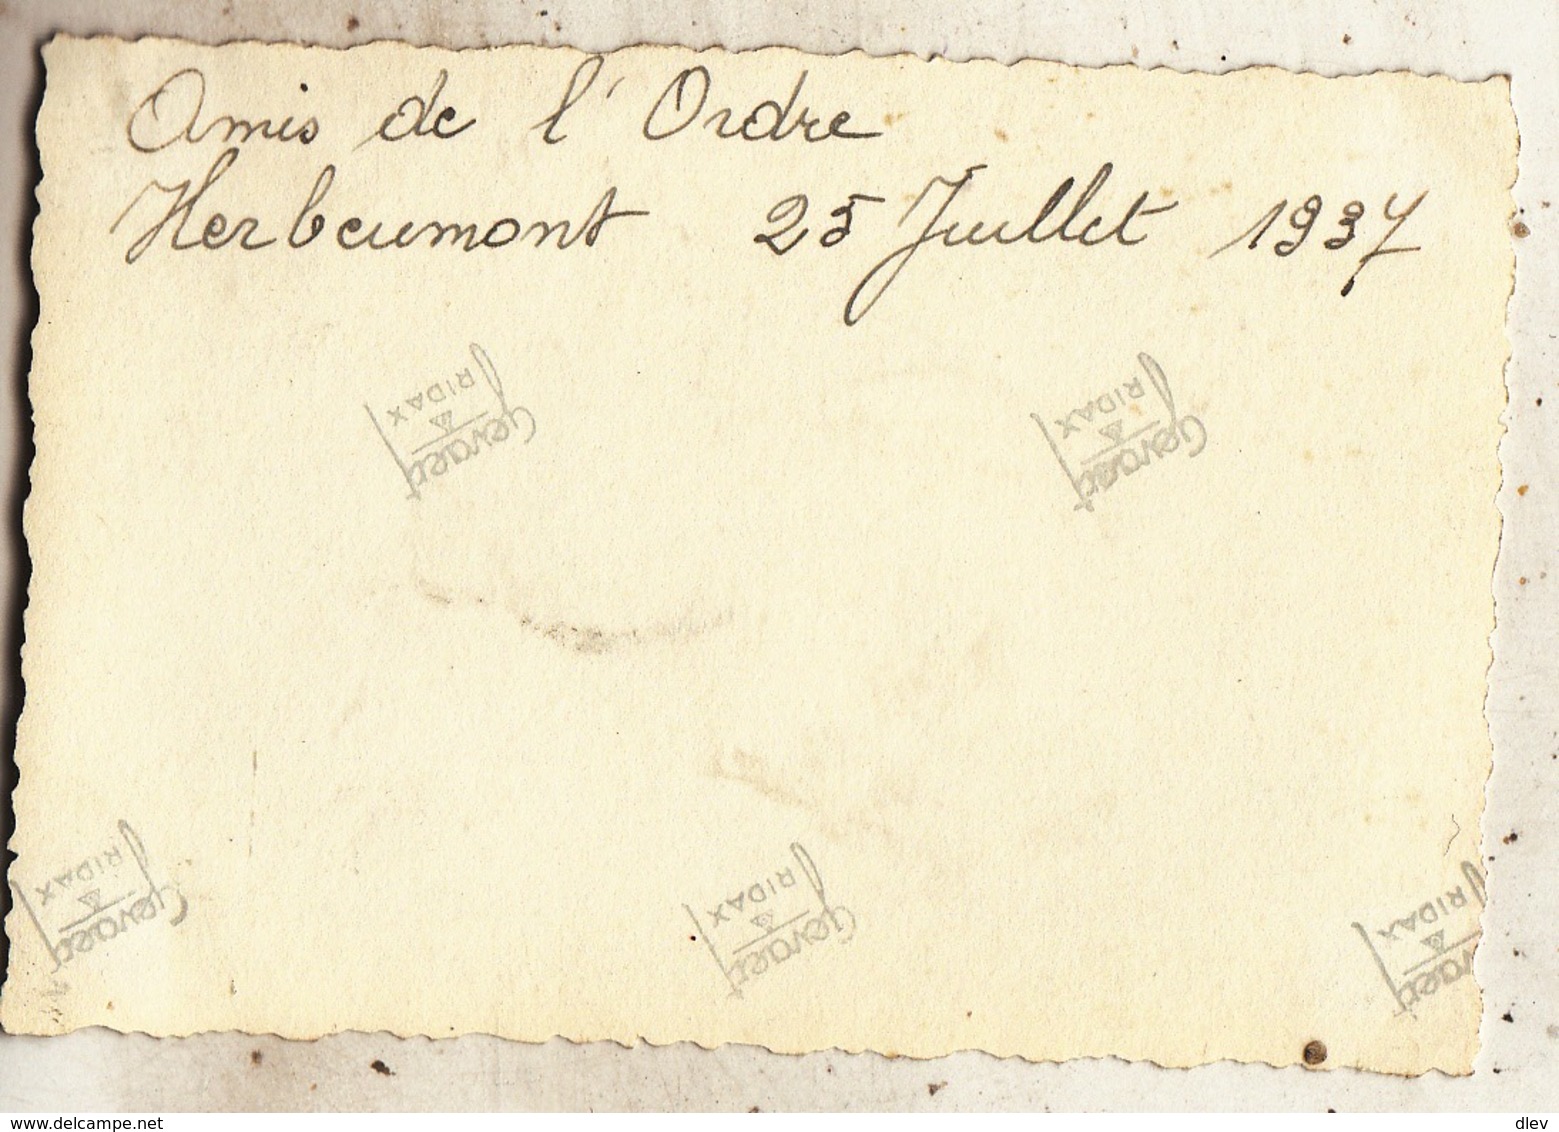 Amis de l'Ordre
Herbeumont 25 Juillet 1937
Gevaert
RIDAX
Gevaert
RIDAX
Gevaert
RIDAX
Gevaert
RIDAX
Gevaert
RIDAX
delcampe.net
dlev